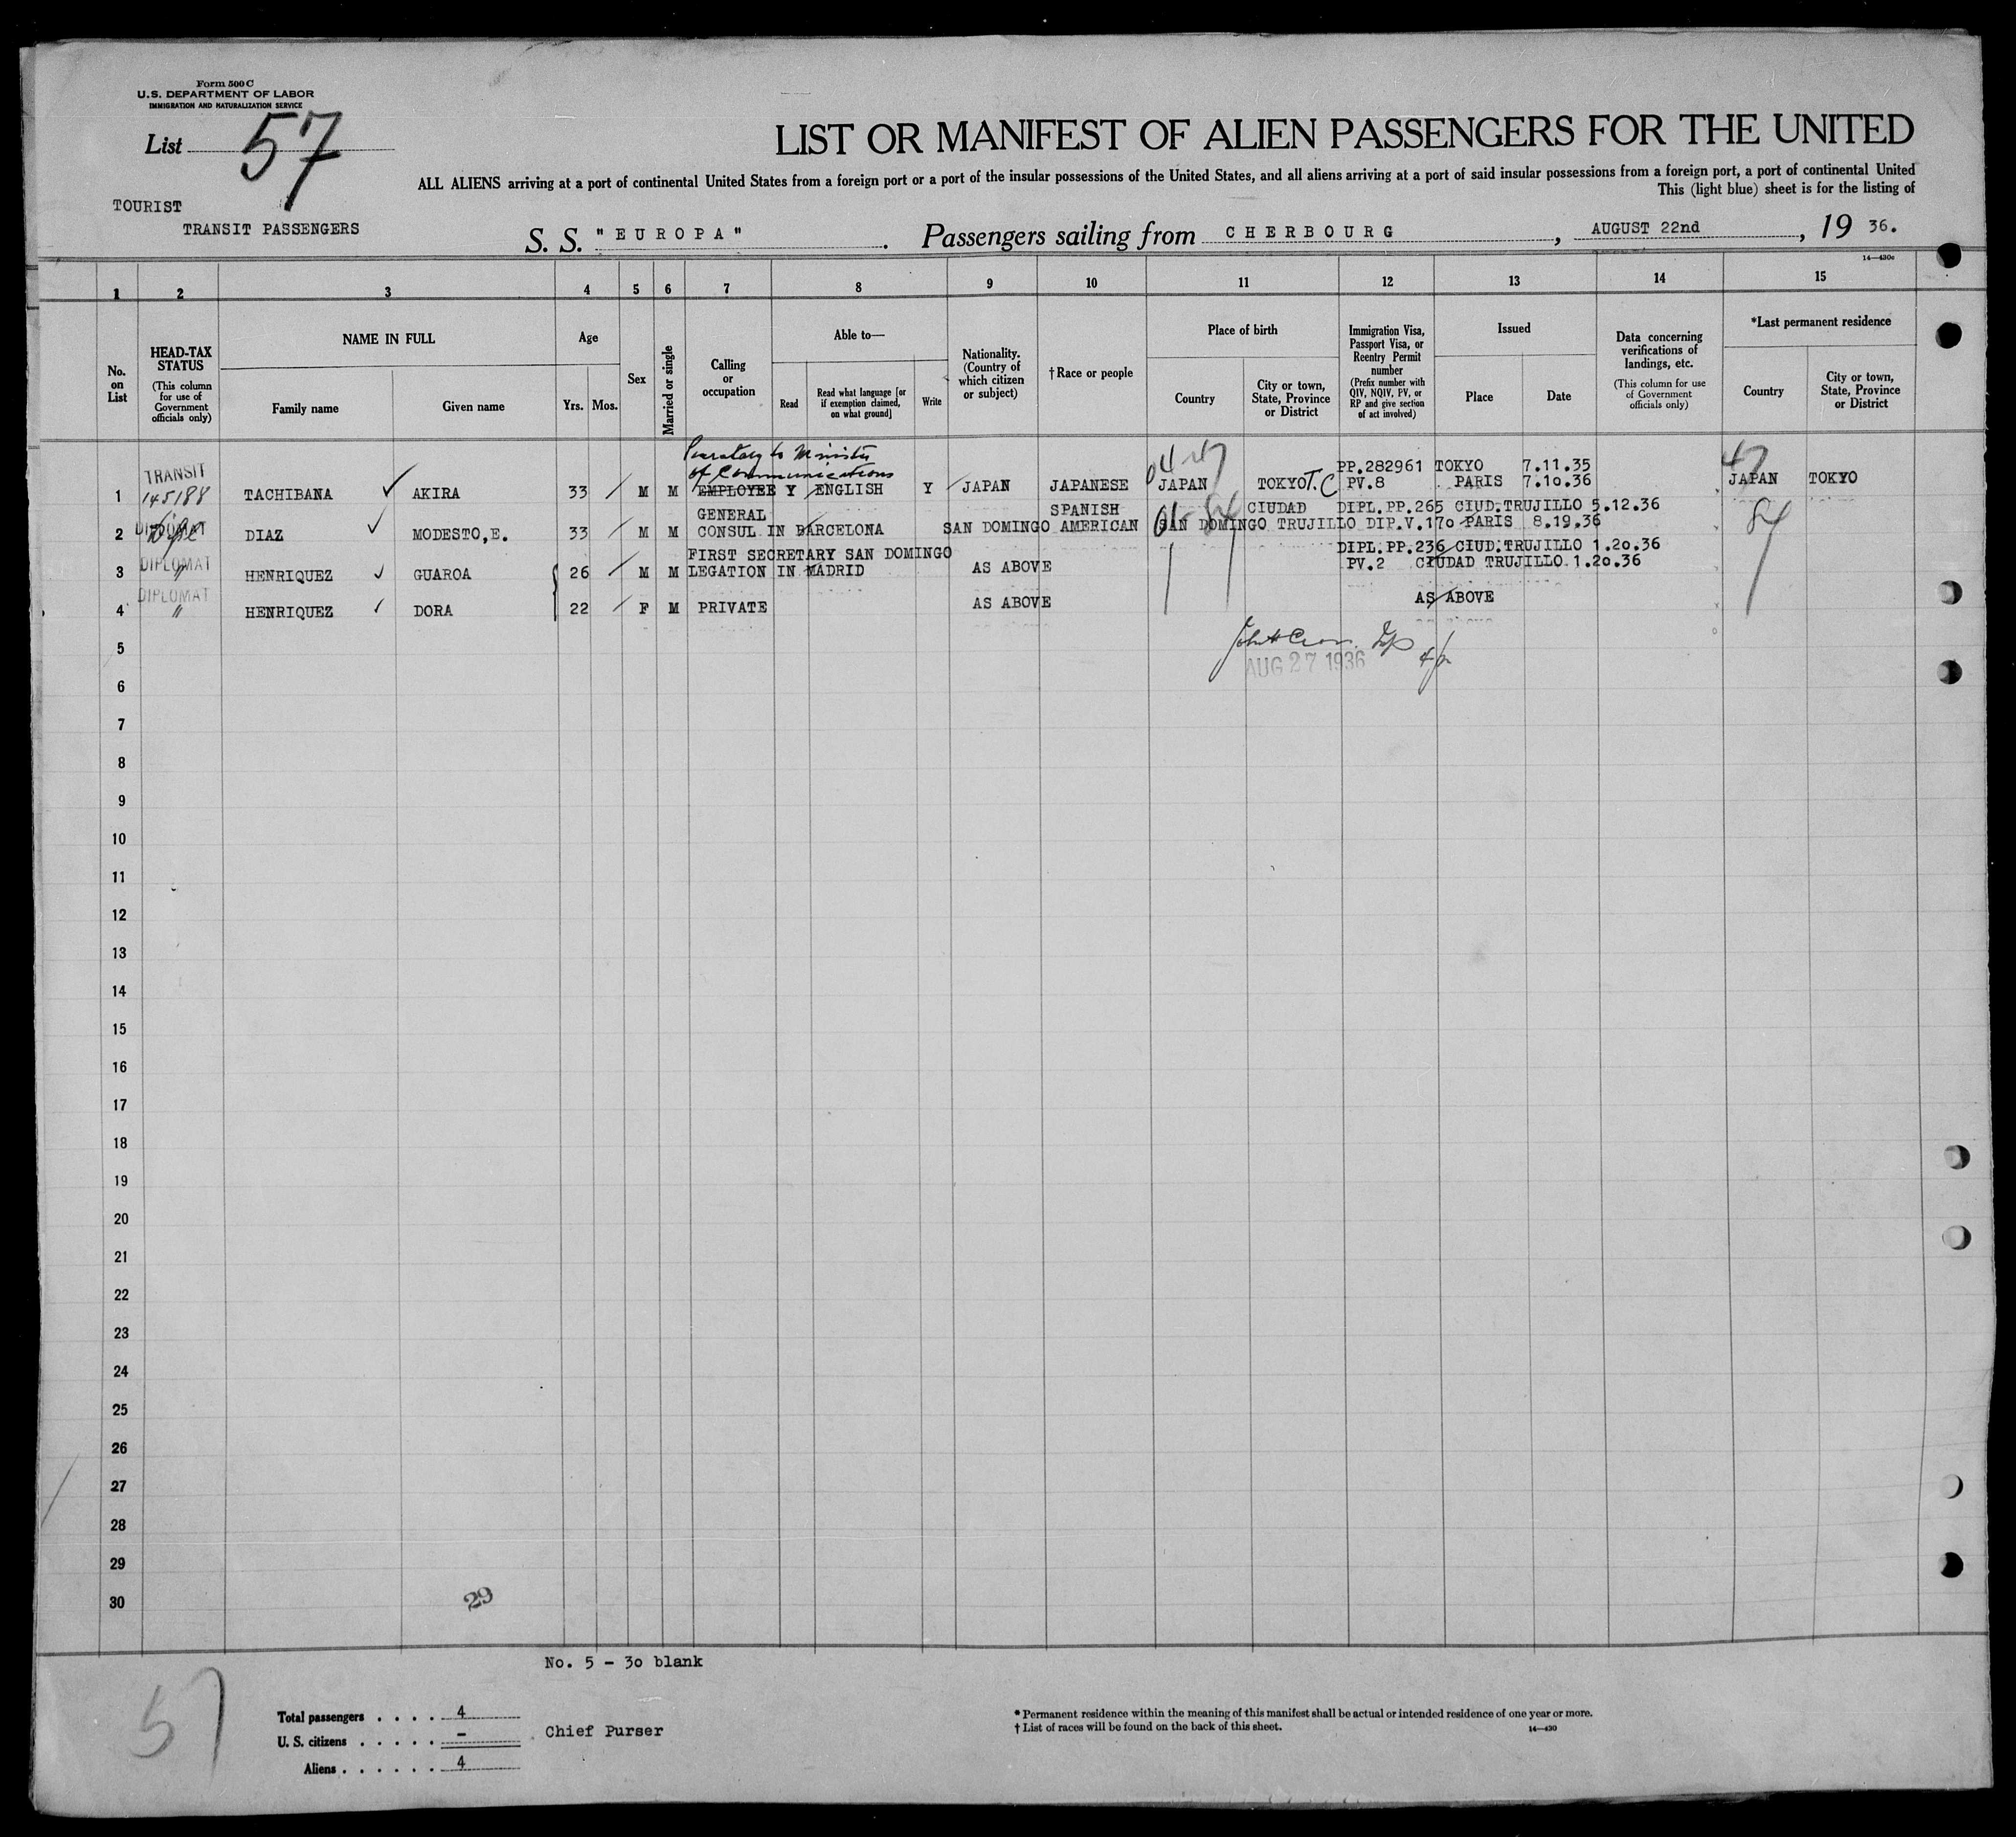 Form 500 C
U.S. DEPARTMENT OF LABOR
IMMIGRATION AND NATURALIZATION SERVICE
List 57
LIST OR MANIFEST OF ALIEN PASSENGERS FOR THE UNITED
ALL ALIENS arriving at a port of continental United States from a foreign port or a port of the insular possessions of the United States, and all aliens arriving at a port of said insular possessions from a foreign port, a port of continental United
This (light blue) sheet is for the listing of
TOURIST
TRANSIT PASSENGERS
S. S. "EUROPA". Passengers sailing from CHERBOURG, AUGUST 22nd, 19 36.
14—430c
1 2 3 4 5 6 7 8 9 10 11 12 13 14 15
No. on List
HEAD-TAX STATUS
(This column for use of Government officials only)
NAME IN FULL
Family name
Given name
Age
Yrs. Mos.
Sex
Married or single
Calling or occupation
Able to—
Read
Read what language [or if exemption claimed, on what ground]
Write
Nationality. (Country of which citizen or subject)
†Race or people
Place of birth
Country
City or town, State, Province or District
Immigration Visa, Passport Visa, or Reentry Permit number
(Prefix number with QIV, NQIV, PV, or RP and give section of act involved)
Issued
Place
Date
Data concerning verifications of landings, etc.
(This column for use of Government officials only)
*Last permanent residence
Country
City or town, State, Province or District
Secretary to Minister
of Communications
TRANSIT PP.282961 TOKYO 7.11.35 47
1 145188 TACHIBANA AKIRA 33 M M EMPLOYEE Y ENGLISH Y JAPAN JAPANESE JAPAN TOKYO T.C PV.8 PARIS 7.10.36 JAPAN TOKYO
GENERAL SPANISH CIUDAD DIPL.PP.265 CIUD.TRUJILLO 5.12.36
2 DIPLOMAT DIAZ MODESTO,E. 33 M M CONSUL IN BARCELONA SAN DOMINGO AMERICAN SAN DOMINGO TRUJILLO DIP.V.170 PARIS 8.19.36 84
DIPLOMAT FIRST SECRETARY SAN DOMINGO DIPL.PP.236 CIUD.TRUJILLO 1.20.36
3 " HENRIQUEZ GUAROA 26 M M LEGATION IN MADRID AS ABOVE PV.2 CIUDAD TRUJILLO 1.20.36
DIPLOMAT
4 " HENRIQUEZ DORA 22 F M PRIVATE AS ABOVE AS ABOVE
5
AUG 27 1936
6
7
8
9
10
11
12
13
14
15
16
17
18
19
20
21
22
23
24
25
26
27
28
29
30
29
No. 5 - 30 blank
57
Total passengers . . . . 4
U. S. citizens . . . . . -
Aliens . . . . . . 4
Chief Purser
* Permanent residence within the meaning of this manifest shall be actual or intended residence of one year or more.
† List of races will be found on the back of this sheet.
14—430